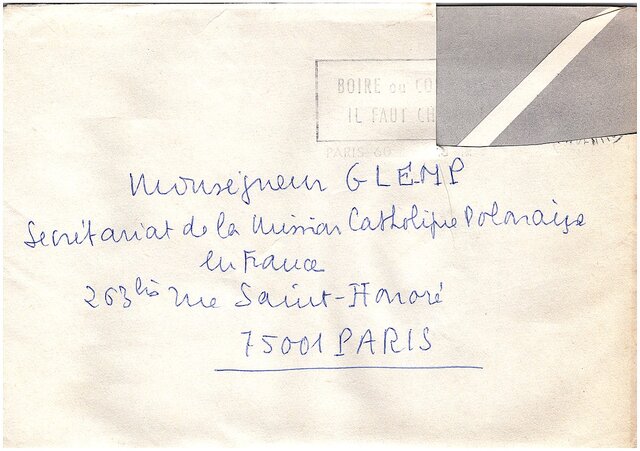 BOIRE ou
IL FAUT
PARIS 60
Monseigneur GLEMP
Secrétariat de la Mission Catholique Polonaise
en France
263 bis rue Saint-Honoré
75001 PARIS